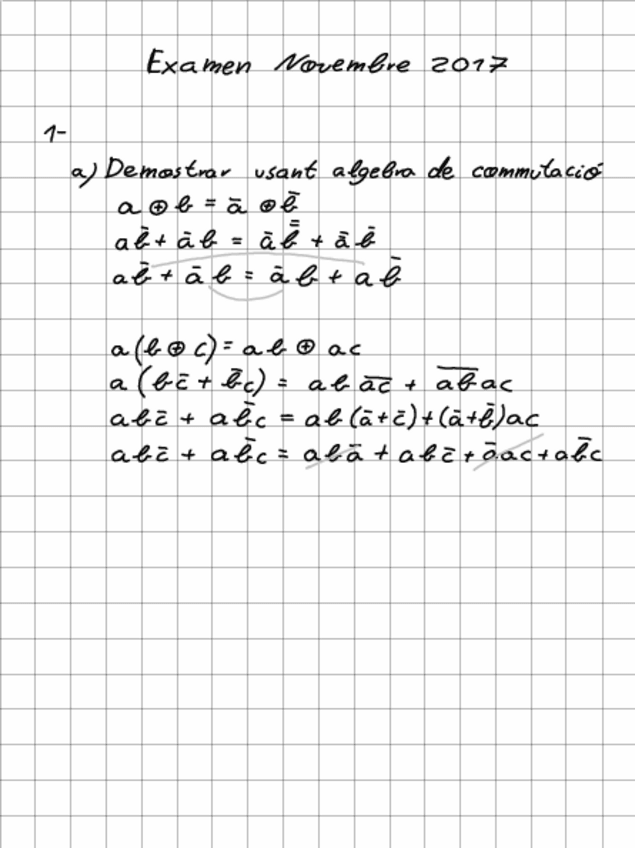 Examen Novembre 2017
1-
a) Demostrar usant algebra de commutació
a ⊕ b = ā ⊕ b̄
ab̄ + āb = āb̿ + āb̄
ab̄ + āb = āb + ab̄
a(b ⊕ c) = ab ⊕ ac
a(bc̄ + b̄c) = ab a̅c̅ + a̅b̅ ac
abc̄ + ab̄c = ab(ā+c̄)+(ā+b̄)ac
abc̄ + ab̄c = abā + abc̄ + āac + ab̄c